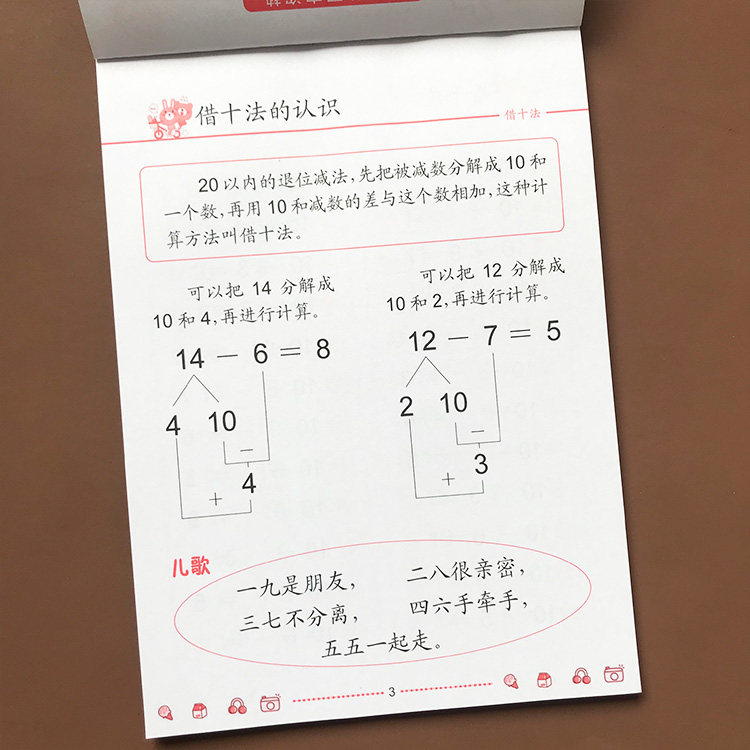 借十法的认识
借十法
20以内的退位减法,先把被减数分解成10和
一个数,再用10和减数的差与这个数相加,这种计
算方法叫借十法。
可以把 14 分解成
10 和 4,再进行计算。
14 − 6 = 8
4 10
−
4
+
可以把 12 分解成
10 和 2,再进行计算。
12 − 7 = 5
2 10
−
3
+
儿歌
一九是朋友, 二八很亲密,
三七不分离, 四六手牵手,
五五一起走。
3